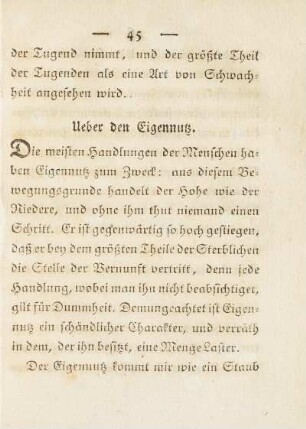 — 45 —
der Tugend nimmt, und der größte Theil
der Tugenden als eine Art von Schwach-
heit angesehen wird.
Ueber den Eigennutz.
Die meisten Handlungen der Menschen ha-
ben Eigennutz zum Zweck: aus diesem Be-
wegungsgrunde handelt der Hohe wie der
Niedere, und ohne ihm thut niemand einen
Schritt. Er ist gegenwärtig so hoch gestiegen,
daß er bey dem größten Theile der Sterblichen
die Stelle der Vernunft vertritt, denn jede
Handlung, wobei man ihn nicht beabsichtiget,
gilt für Dummheit. Demungeachtet ist Eigen-
nutz ein schändlicher Charakter, und verräth
in dem, der ihn besitzt, eine Menge Laster.
Der Eigennutz kommt mir wie ein Staub